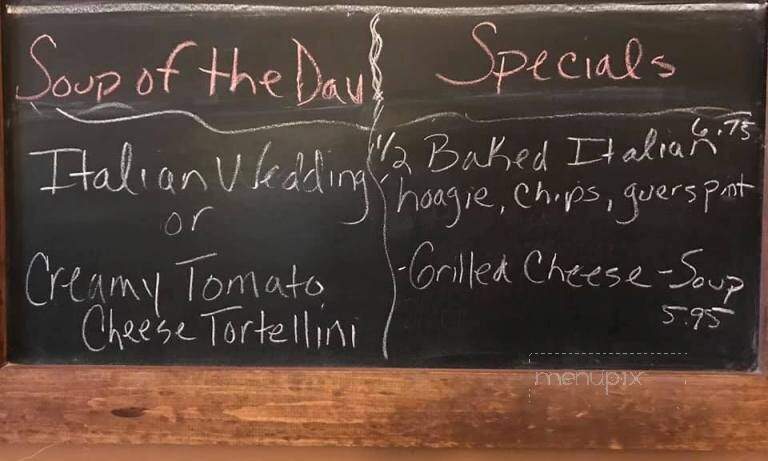 Soup of the Day
Italian Wedding
or
Creamy Tomato
Cheese Tortellini
Specials
6.75
1/2 Baked Italian
hoagie, chips, guers pint
-Grilled Cheese - Soup
5.95
menupix